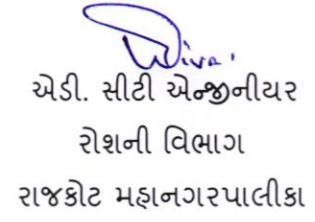 એડી. સીટી એન્જીનીયર
રોશની વિભાગ
રાજકોટ મહાનગરપાલીકા